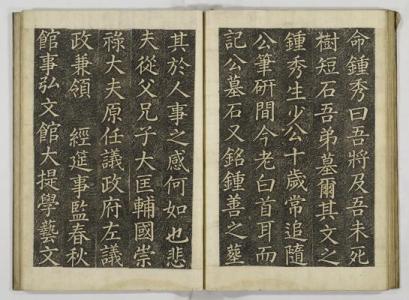 命鍾秀曰吾將及吾未死
樹短石吾弟墓爾其文之
鍾秀生少公十歲常追隨
公筆硏間今老白首耳而
記公墓石又銘鍾善之墓
其於人事之感何如也悲
夫從父兄子大匡輔國崇
祿大夫原任議政府左議
政兼領 經筵事監春秋
館事弘文館大提學藝文